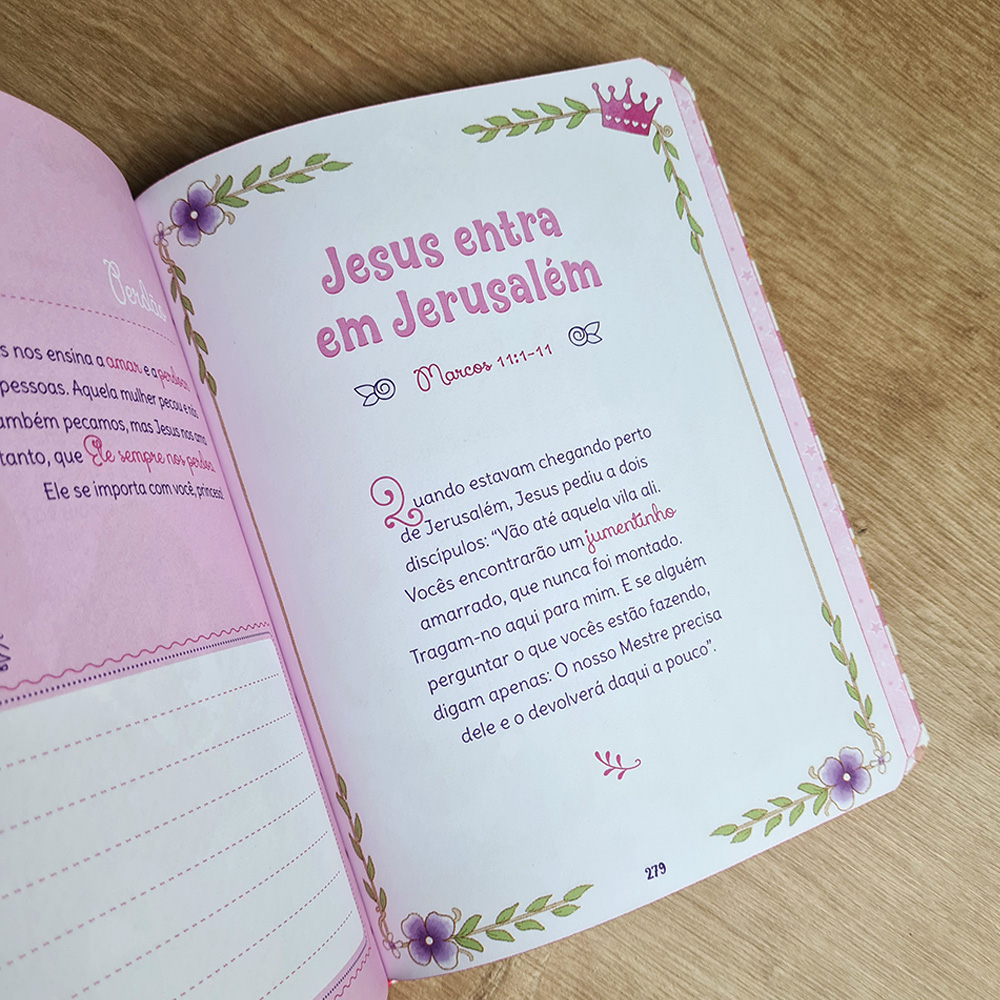 Perdão
nos ensina a amar e a perdoar
pessoas. Aquela mulher pecou e nós
também pecamos, mas Jesus nos ama
tanto, que Ele sempre nos perdoa.
Ele se importa com você, princesa!
Jesus entra
em Jerusalém
Marcos 11:1-11
Quando estavam chegando perto
de Jerusalém, Jesus pediu a dois
discípulos: “Vão até aquela vila ali.
Vocês encontrarão um jumentinho
amarrado, que nunca foi montado.
Tragam-no aqui para mim. E se alguém
perguntar o que vocês estão fazendo,
digam apenas: O nosso Mestre precisa
dele e o devolverá daqui a pouco”.
279